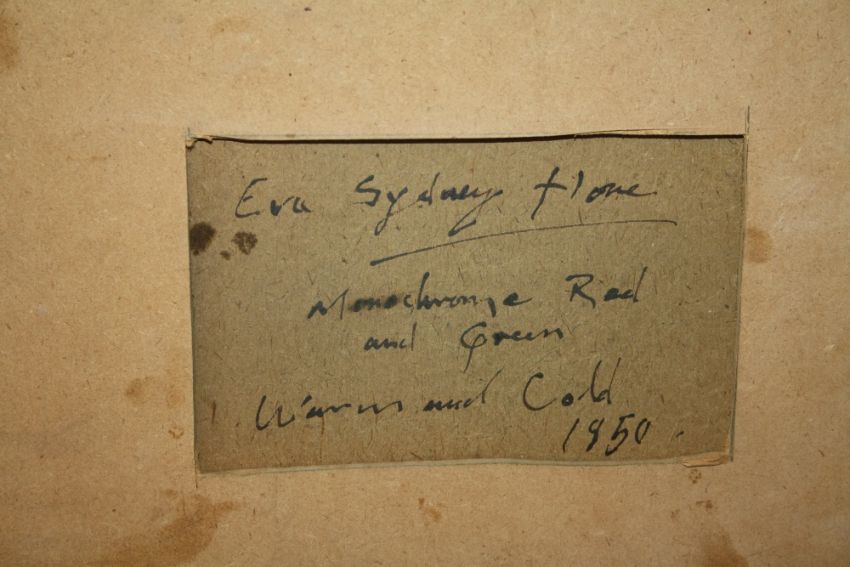 Eva Sydney Hone
Monochrome Red
and Green
Warm and Cold
1950.